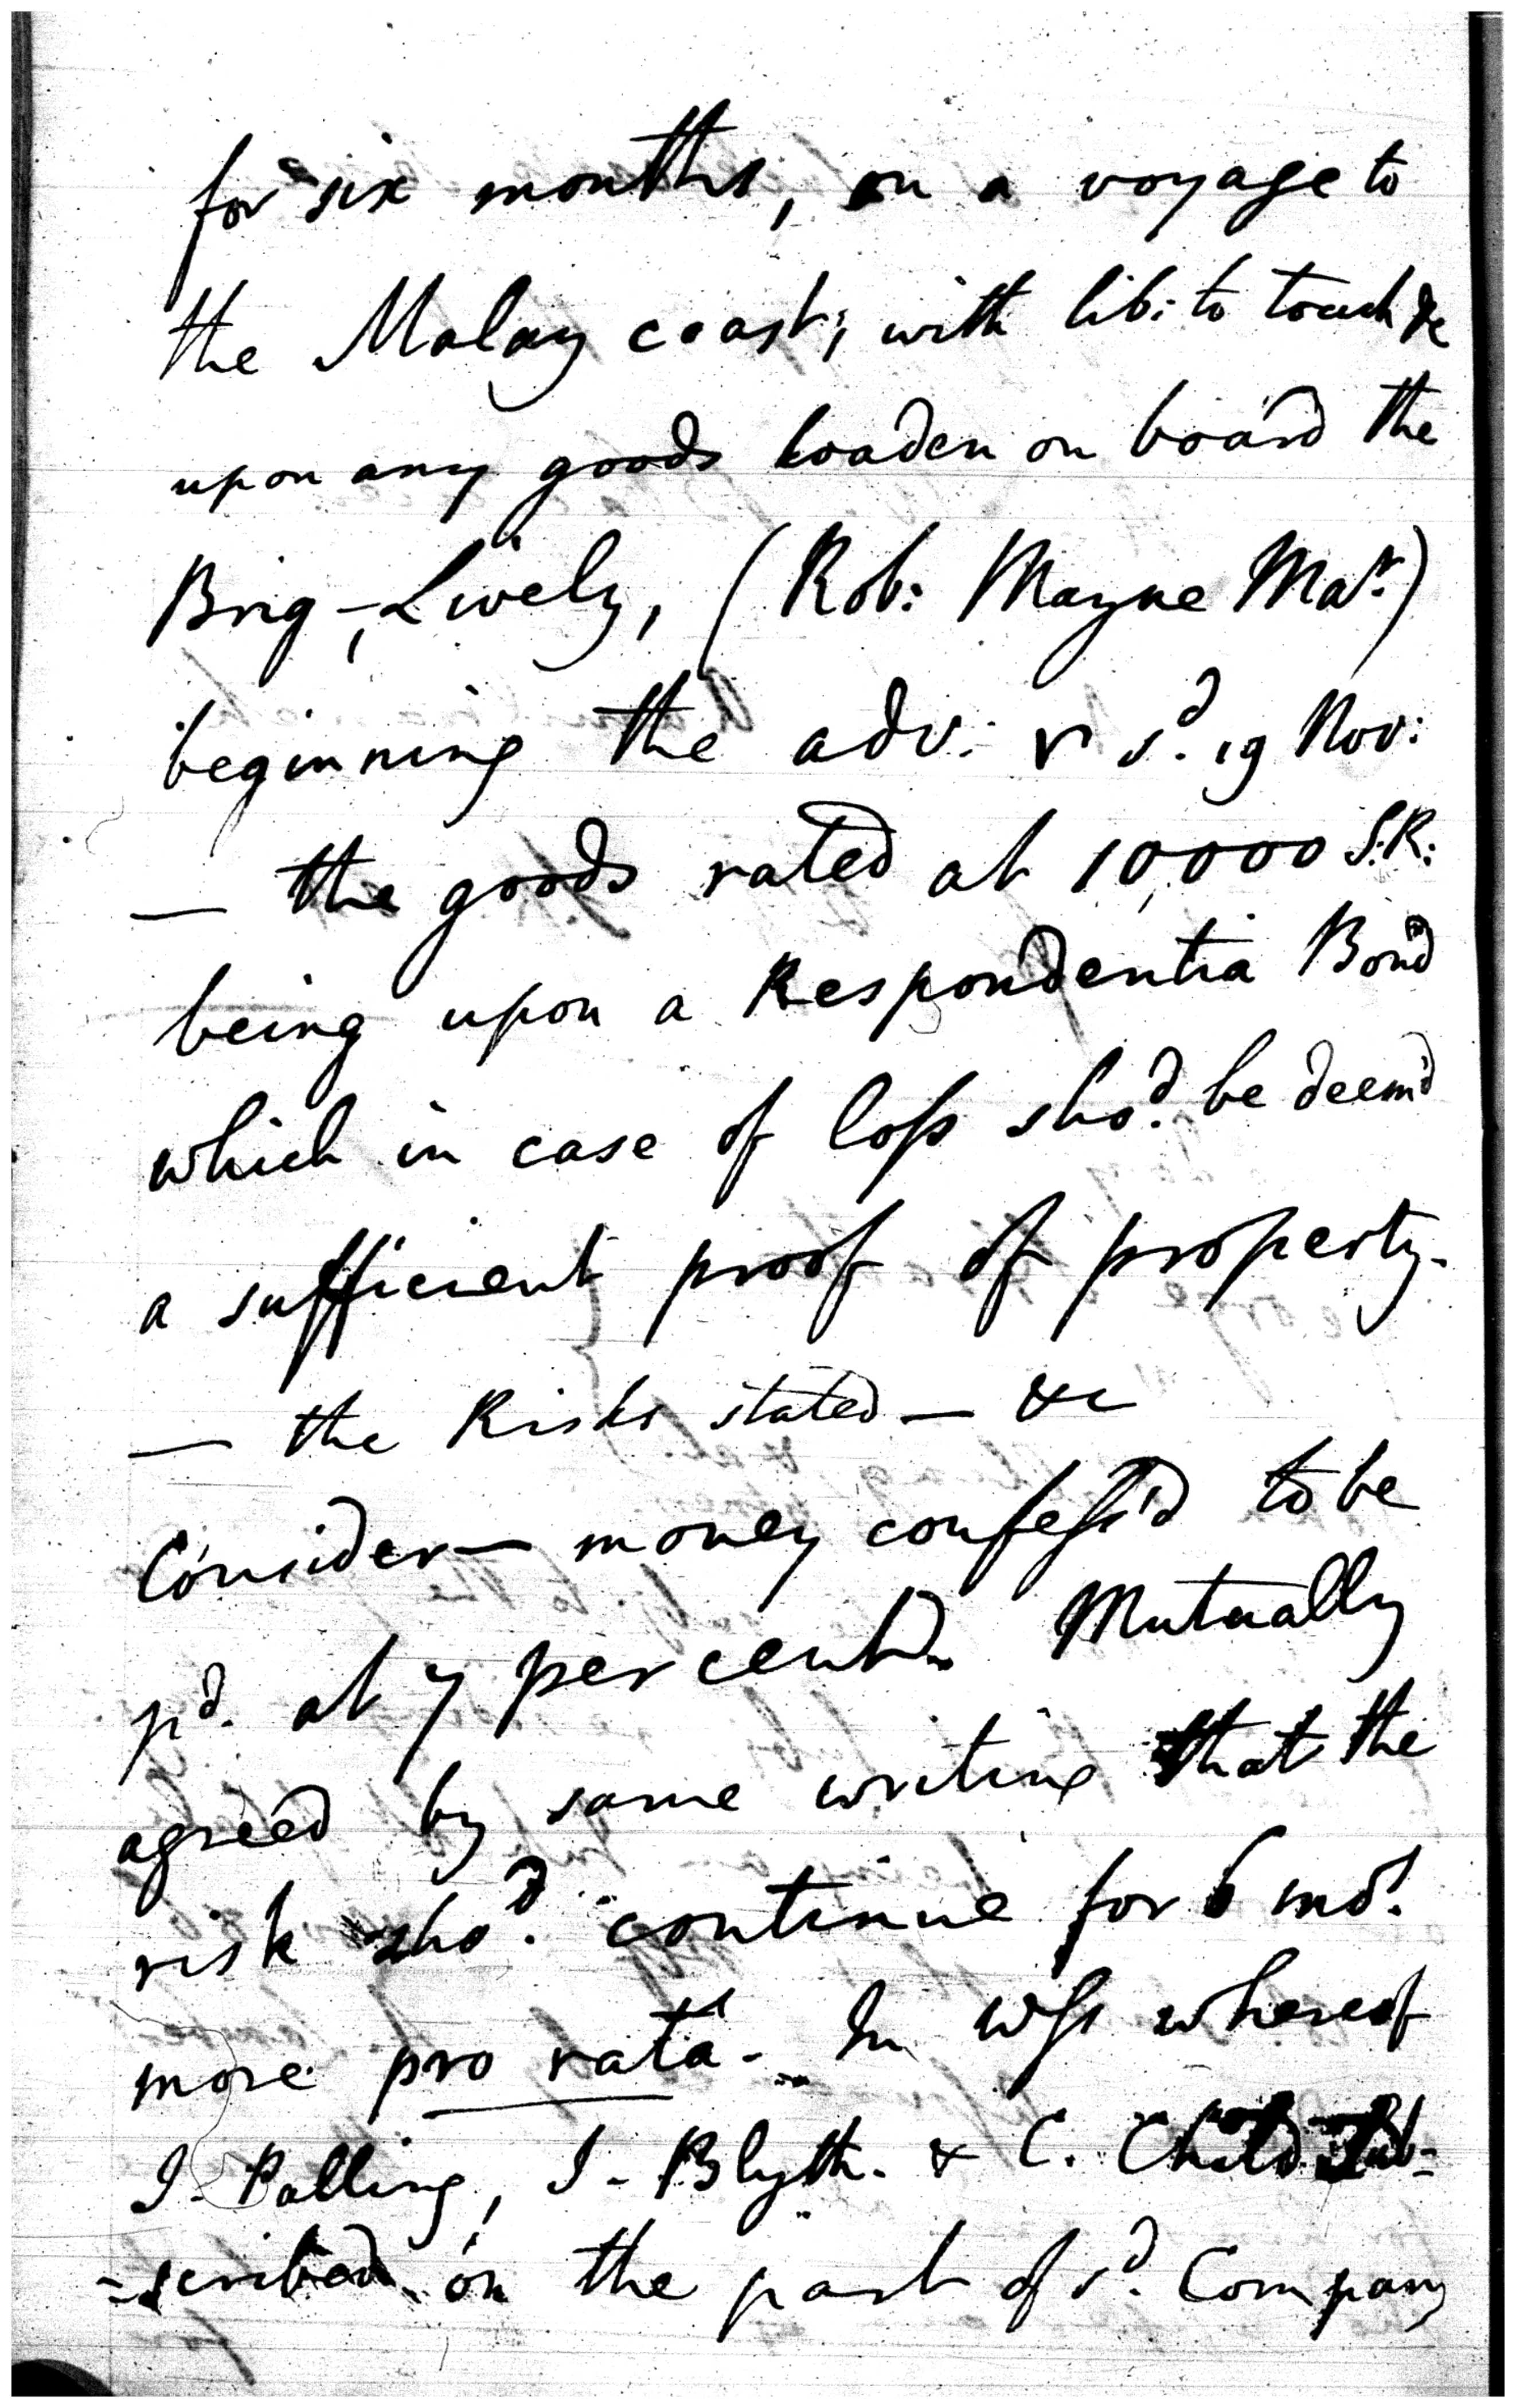 for six months, on a voyage to
the Malay coast; with lib: to touch &c
upon any goods loaden on board the
Brig-, Lively, (Rob: Mayne Mar.)
beginning the adv: r sd. 19 Nov:
— the goods rated at 10,000 S.R:
being upon a Respondentia Bond
which in case of loss shod. be deem'd
a sufficient proof of property.
— the Risks stated — &c
Consider— money confess'd to be
pd. at 7 per cent. Mutually
agreed by same writing that the
risk shod. continue for 6 mos.
more pro rata. In wss whereof
J. Palling, J. Blyth. & C. Child Sub-
-scribed on the part of sd. Company